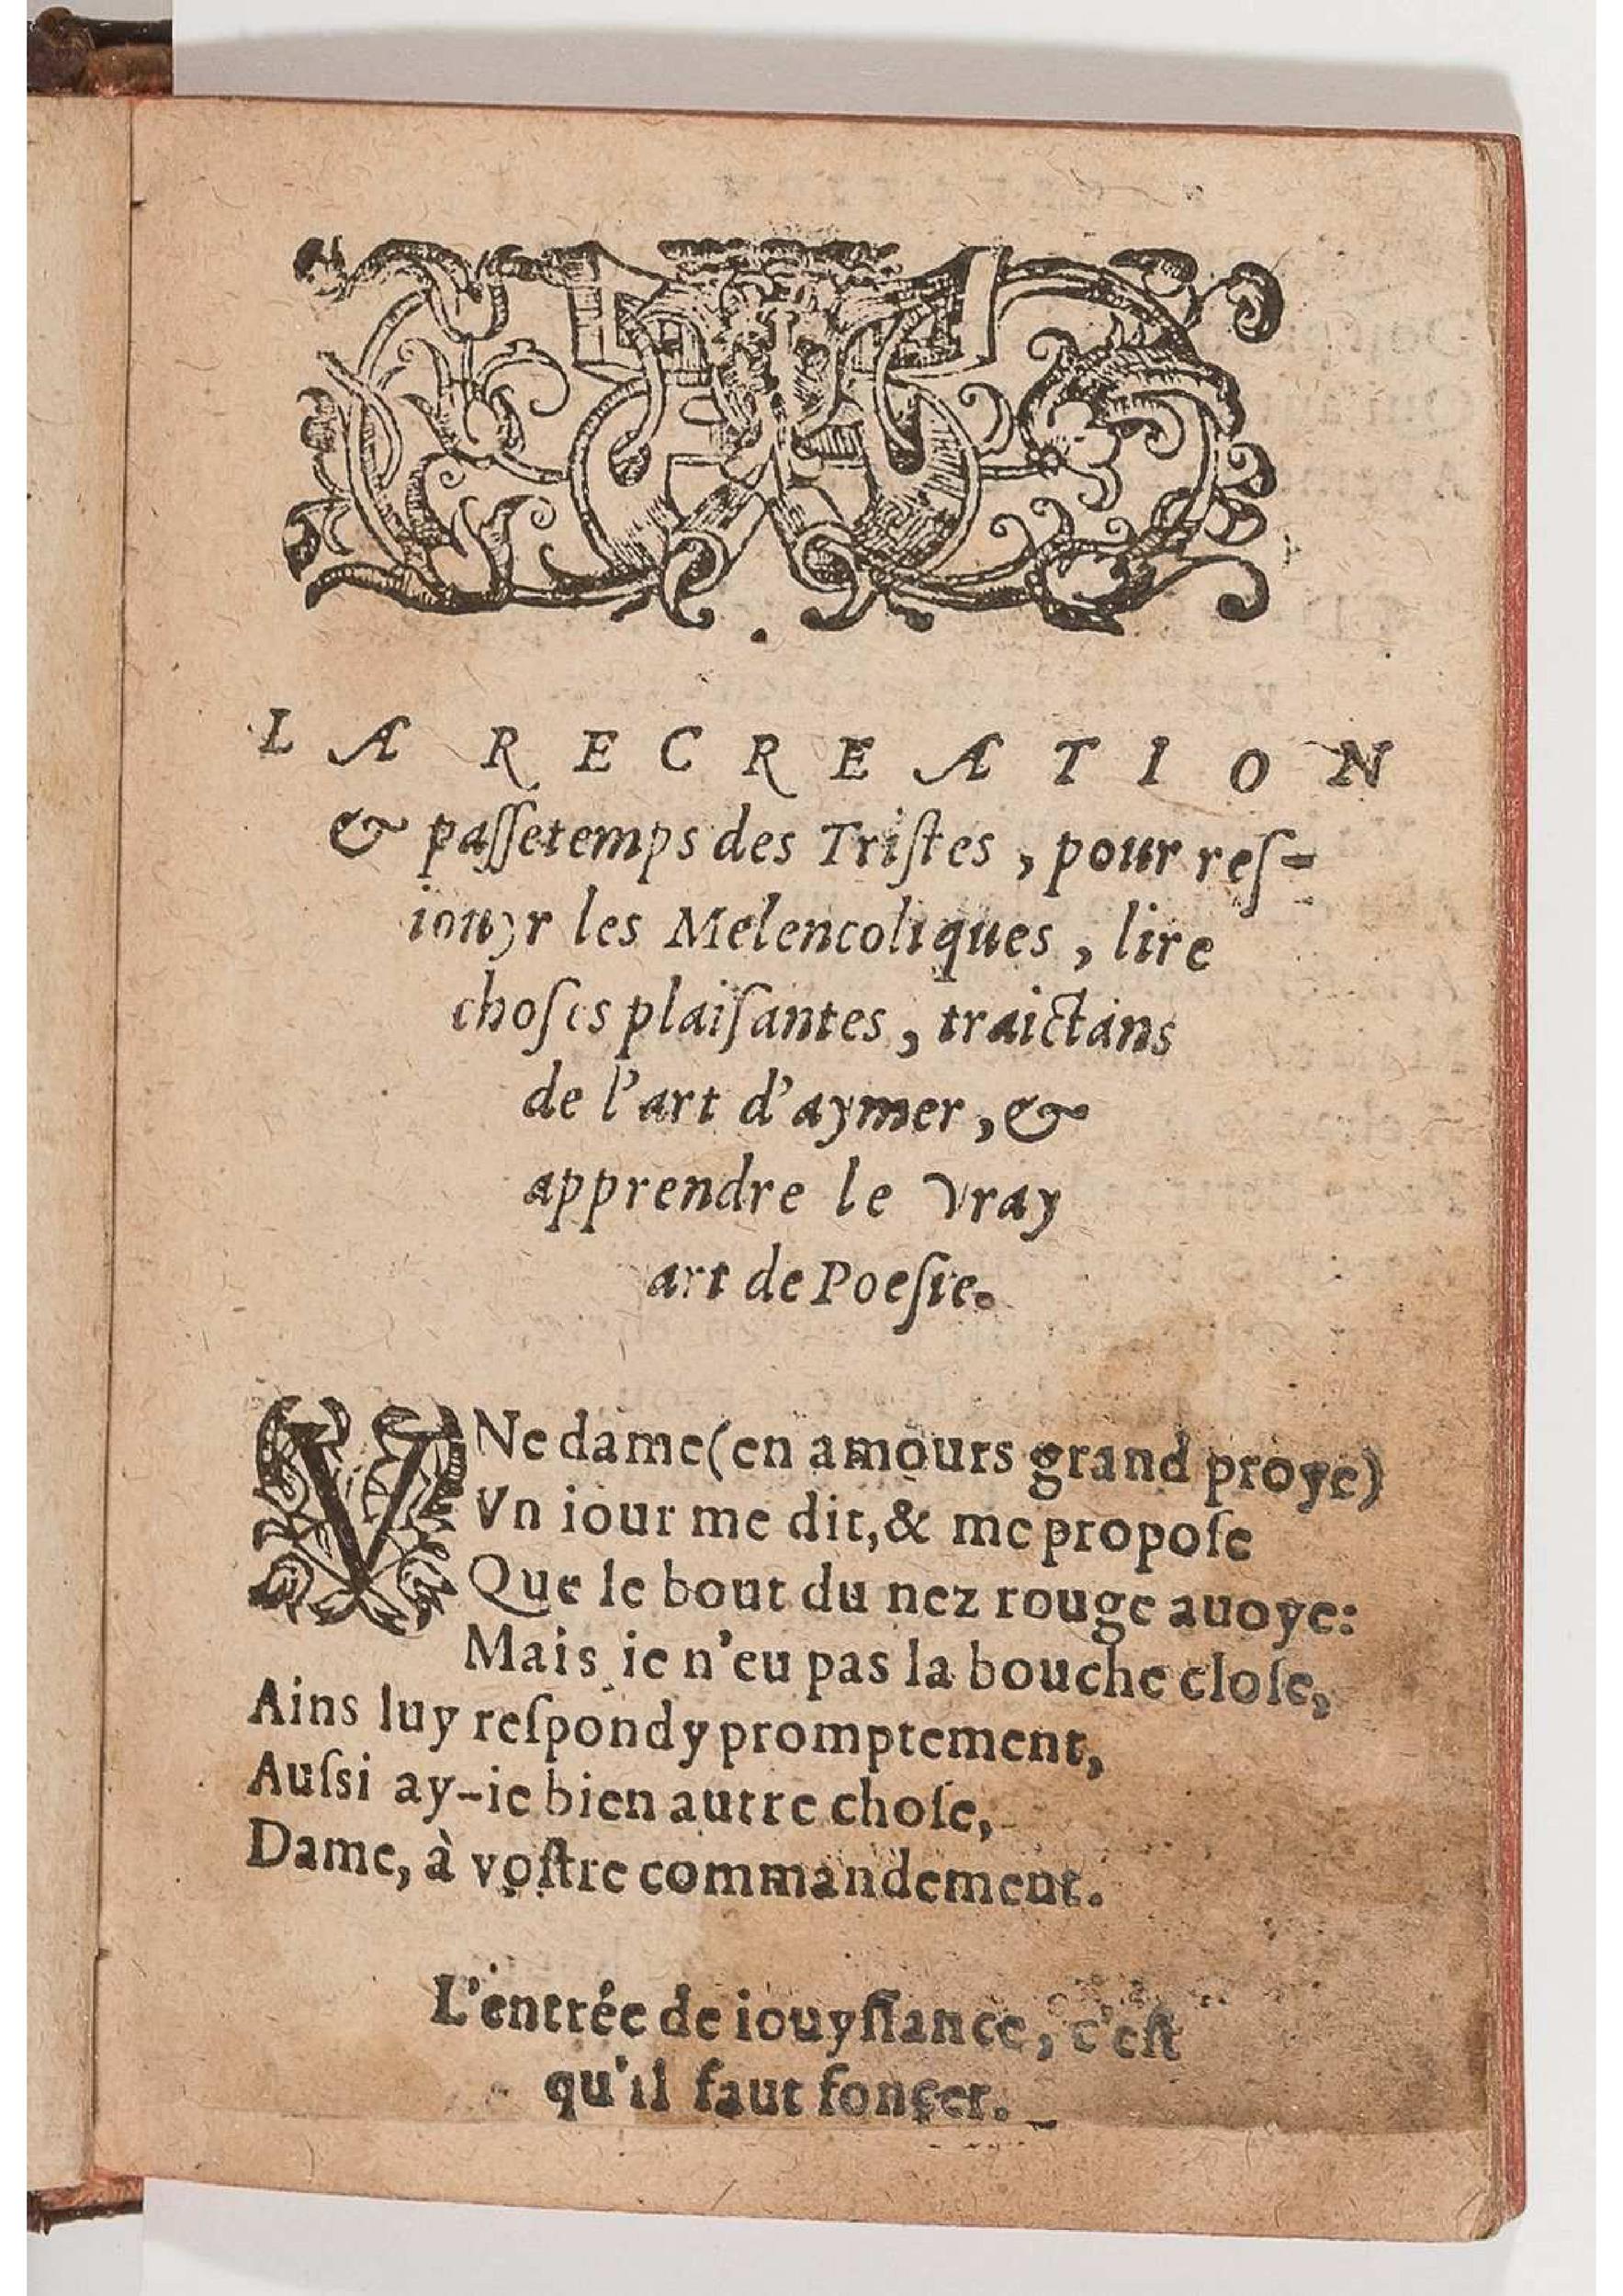 LA RECREATION
& paſſetemps des Triſtes, pour reſ-
iouyr les Melencoliques, lire
choſes plaiſantes, traictans
de l'art d'aymer, &
apprendre le vray
art de Poeſie.
VNe dame (en amours grand proye)
Vn iour me dit, & me propoſe
Que le bout du nez rouge auoye:
Mais ie n'eu pas la bouche cloſe,
Ains luy reſpondy promptement,
Auſsi ay-ie bien autre choſe,
Dame, à voſtre commandement.
L'entrée de iouyſſance, c'eſt
qu'il faut fonçer.